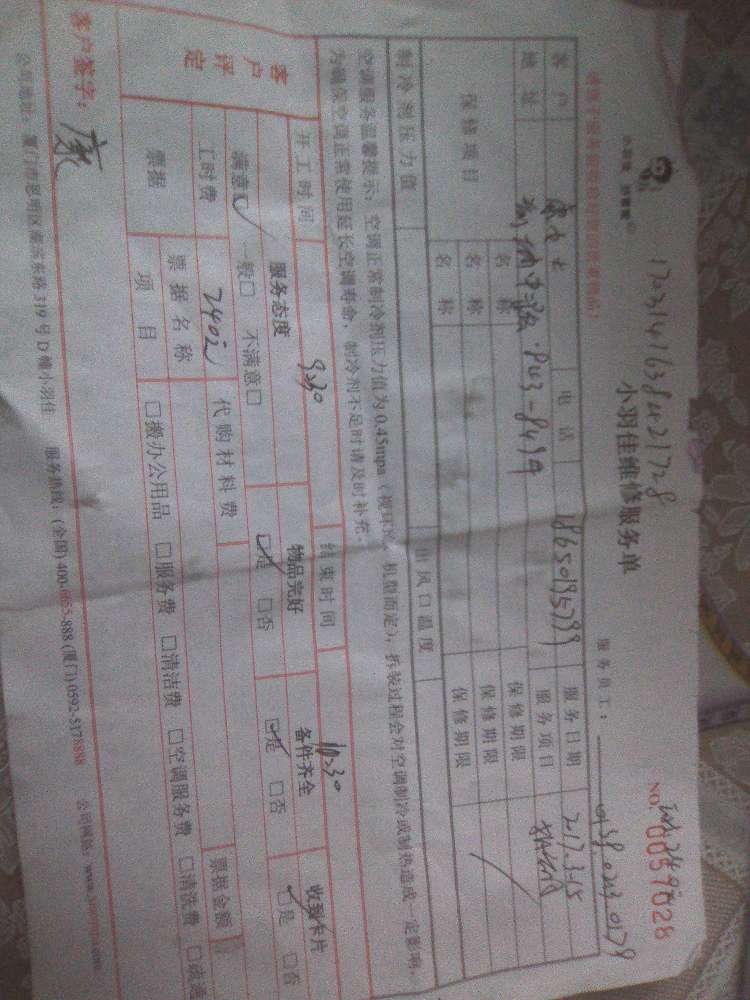 小羽佳维修服务单
NO. 0057028
服务员工：
客户 电话 服务日期 2017.3.15
地址 服务项目
保修项目 名称 保修期限
名称 保修期限
名称 保修期限
制冷剂压力值 出风口温度
空调服务温馨提示：空调正常制冷剂压力值为0.45mpa（视环境、机型而定），拆装过程会对空调制冷或制热造成一定影响，
为确保空调正常使用延长空调寿命，制冷剂不足时请及时补充。
开工时间 9:30 结束时间 10:30
客户评定 服务态度 物品完好 备件齐全 收到卡片
满意□ 一般□ 不满意□ □是 □否 □是 □否 □是 □否
工时费 240元 代购材料费
票据 票据名称 票据金额
项目 □搬办公用品 □服务费 □清洁费 □空调服务费 □清洗费
客户签字： 康
公司地址：厦门市思明区莲前东路319号D幢小羽佳 服务热线：(全国) 400-6655-888 (厦门) 0592-5178888 公司网址：